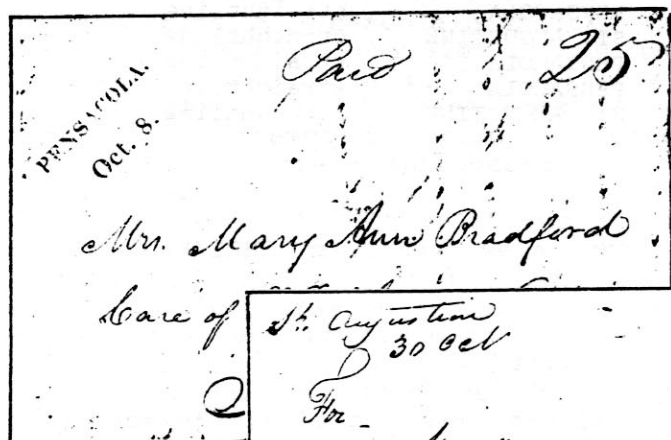 Paid 25
PENSACOLA.
Oct. 8.
Mrs. Mary Ann Bradford
Care of
St. Augustine
30 Oct
For